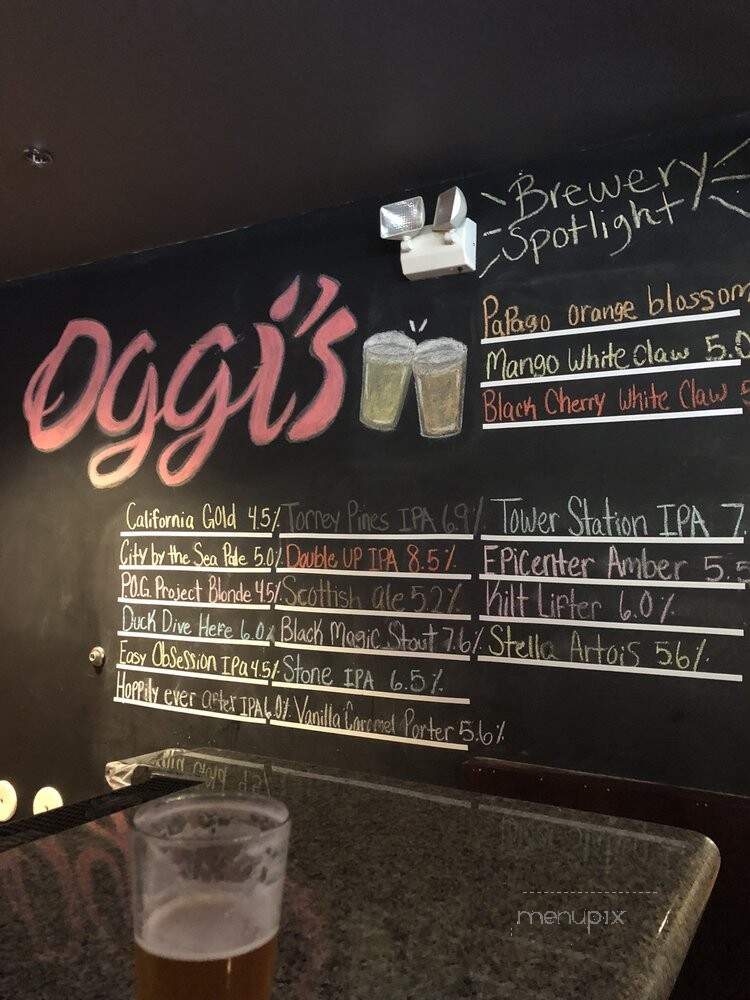 Brewery
Spotlight
Oggi's
Papago orange blossom
Mango White Claw 5.0
Black Cherry White Claw 5
California Gold 4.5%
City by the Sea Pale 5.0%
P.O.G. Project Blonde 4.5%
Duck Dive Hefe 6.0%
Easy Obsession IPA 4.5%
Hoppily ever after IPA 6.0%
Torrey Pines IPA 6.9%
Double UP IPA 8.5%
Scottish ale 5.2%
Black Magic Stout 7.6%
Stone IPA 6.5%
Vanilla Caramel Porter 5.6%
Tower Station IPA 7.
EPicenter Amber 5.5
Kilt Lifter 6.0%
Stella Artois 5.6%
menupix